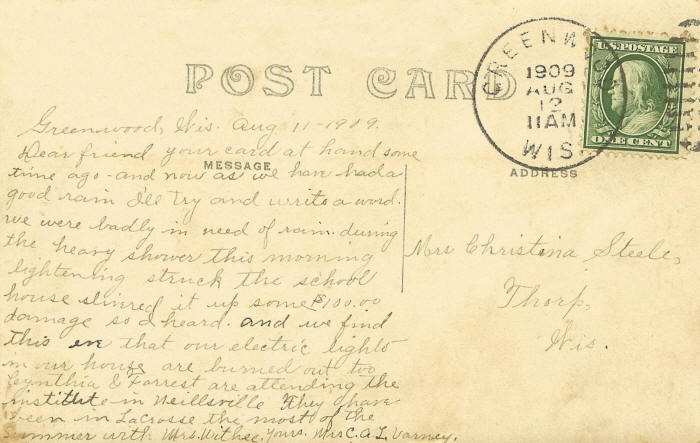 POST CARD
GREENWOOD
1909
AUG
12
11 AM
WIS
U.S. POSTAGE
ONE CENT
MESSAGE
ADDRESS
Greenwood, Wis. Aug 11-1909.
Dear friend your card at hand some
time ago - and now as we have had a
good rain I'll try and write a word.
we were badly in need of rain. during
the heavy shower this morning
lightening struck the school
house slivered it up some $100.00
damage so I heard. and we find
this eve that our electric lights
in our house are burned out too
Cynthia & Forrest are attending the
institute in Neillsville They have
been in LaCrosse the most of the
Summer with Mrs. Withee. Yours. Mrs C. A. L. Varney.
Mrs Christina Steele,
Thorp,
Wis.